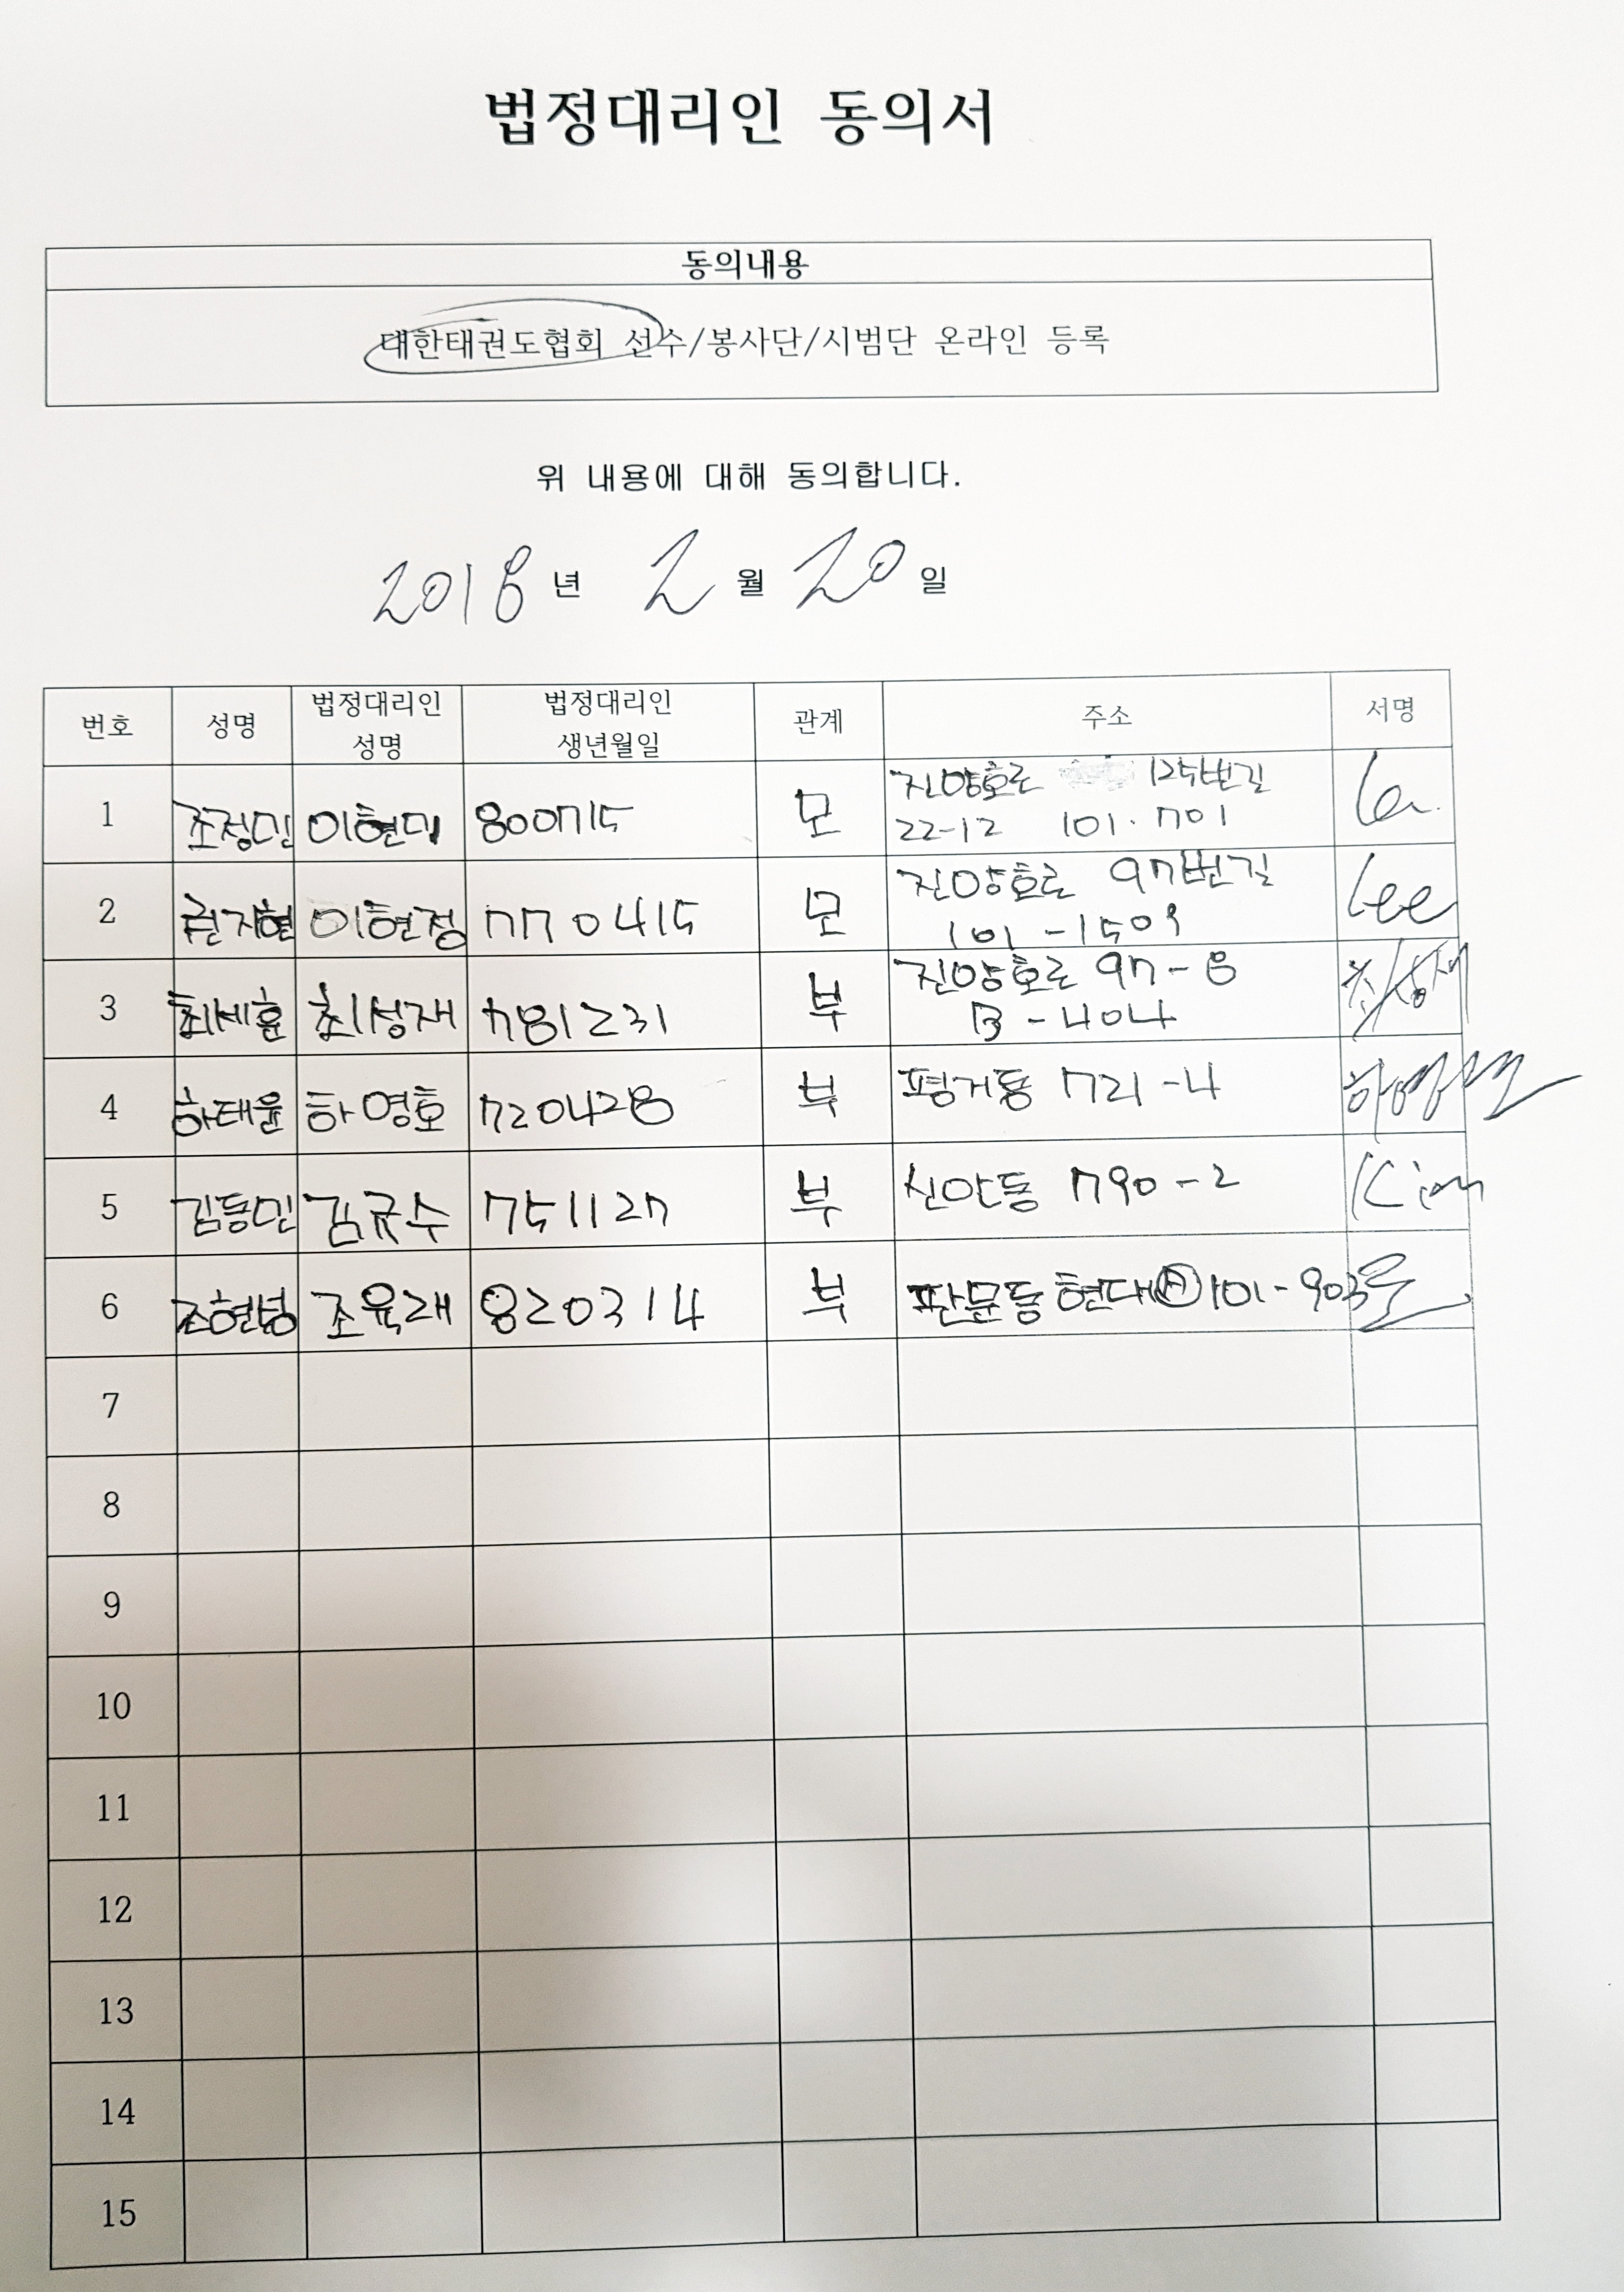 법정대리인 동의서
동의내용
대한태권도협회 선수/봉사단/시범단 온라인 등록
위 내용에 대해 동의합니다.
2018년 2월 20일
번호 성명 법정대리인 성명 법정대리인 생년월일 관계 주소 서명
1 조정민 이현미 800715 모 진양호로 125번길
22-12 101.701
2 권지현 이현정 770415 모 진양호로 97번길 Lee
101-1509
3 최세훈 최성재 781231 부 진양호로 97-8
B-404
4 하태윤 하영호 720428 부 평거동 721-4
5 김동민 김규수 751127 부 신안동 790-2 Kim
6 조현빈 조육래 820314 부 판문동 현대Ⓐ 101-903
7
8
9
10
11
12
13
14
15